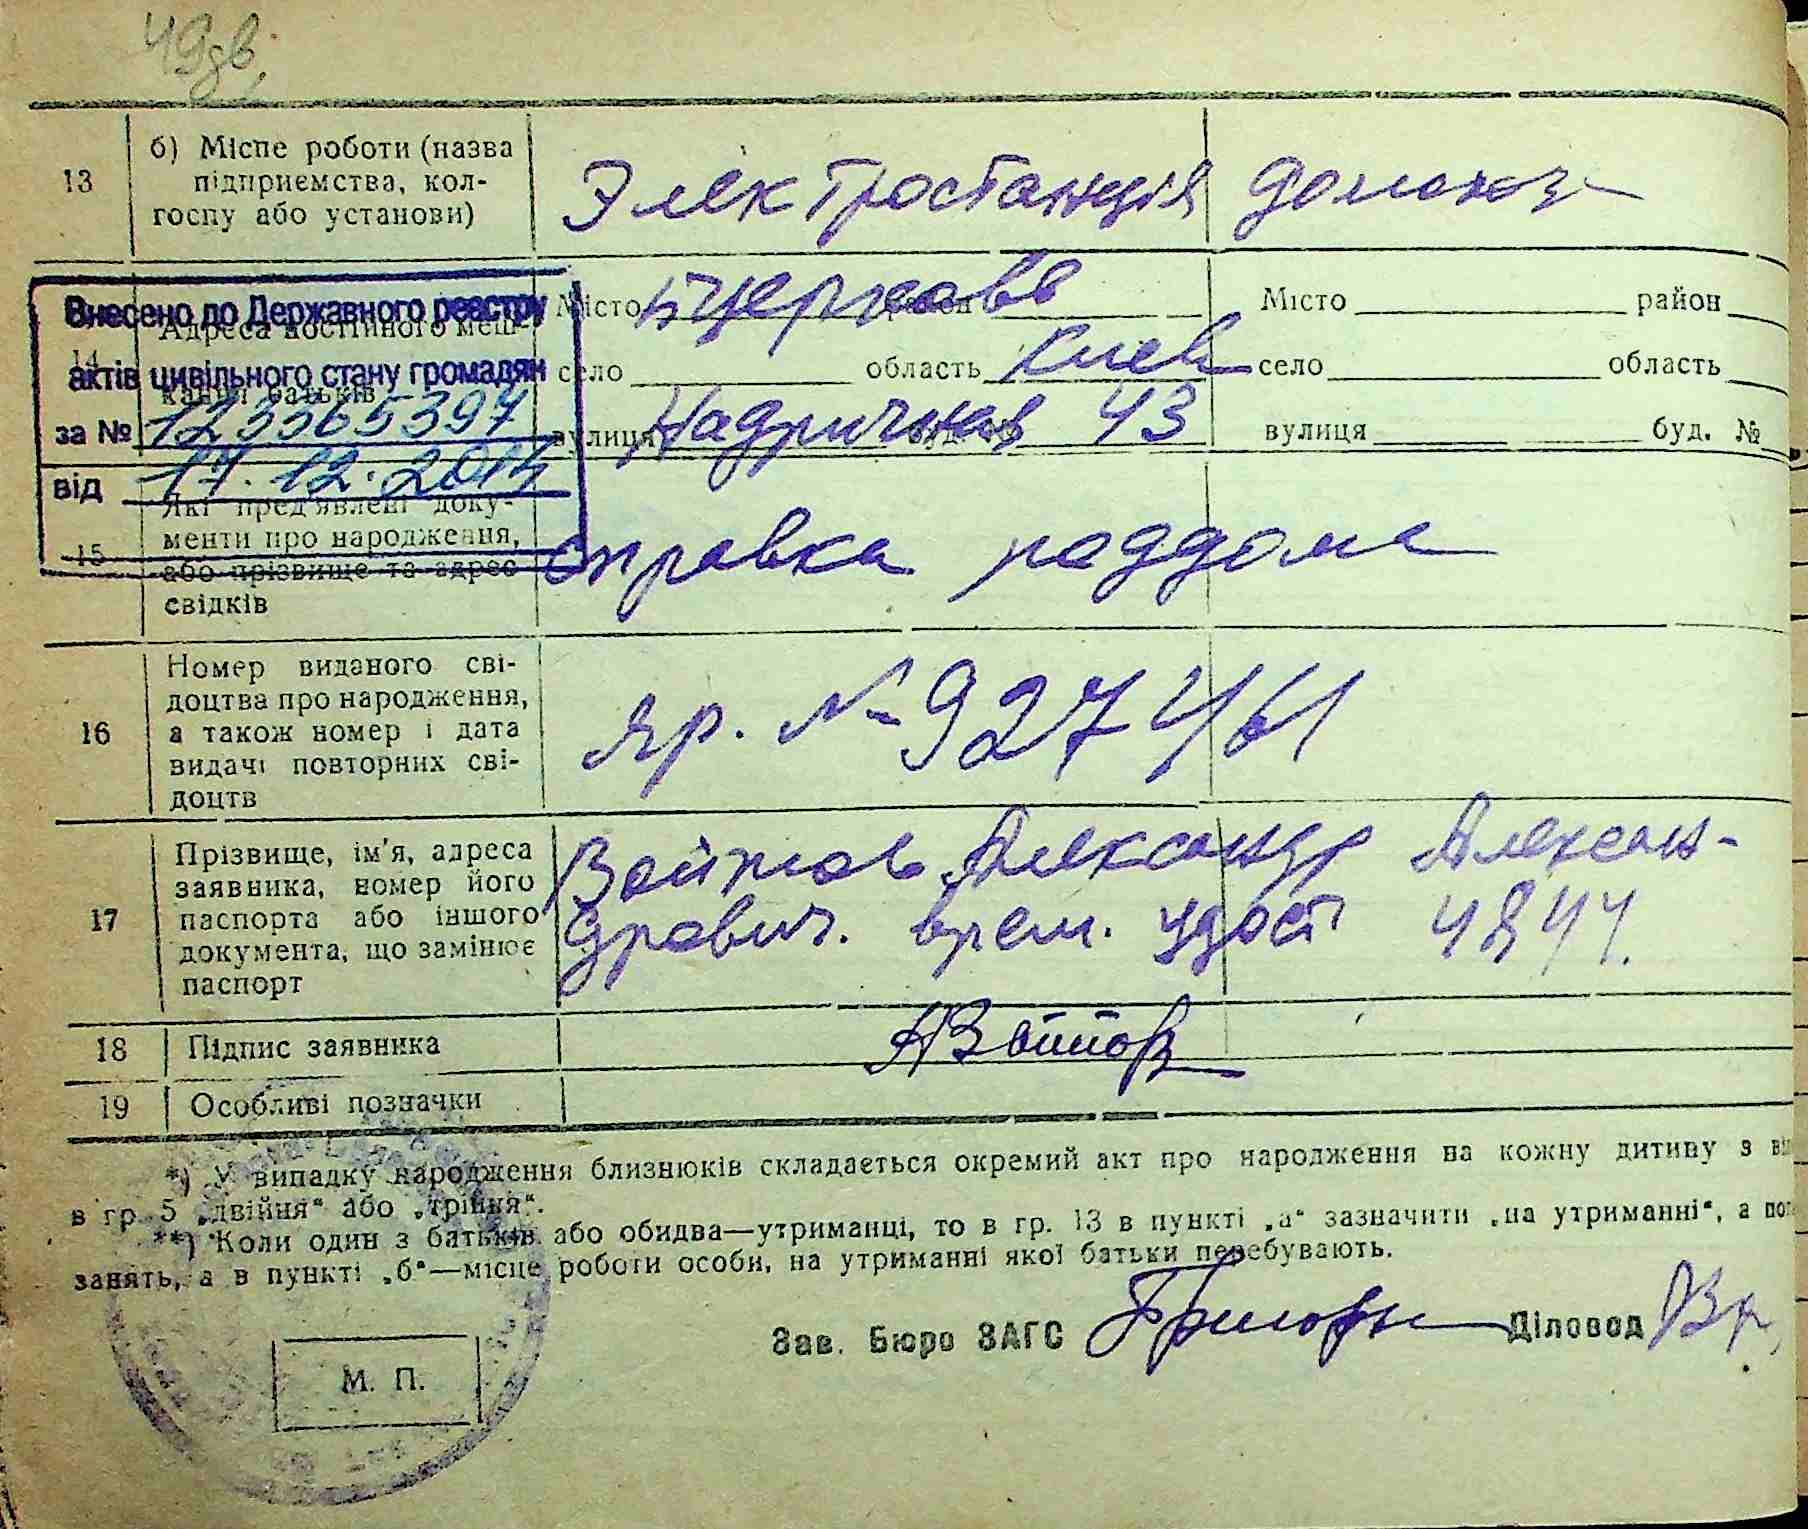 49зв.
13 б) Місце роботи (назва підприємства, колгоспу або установи) Электростанція домохоз
Внесено до Державного реєстру
актів цивільного стану громадян
за № 123565397
від 17.12.2014
14 Адреса постійного мешкання батьків
Місто Бцерковь район Місто район
село область Киев село область
вулиця Надричная 43 вулиця буд. №
15 Які пред'явлені документи про народження, або прізвище та адрес свідків справка роддома
16 Номер виданого свідоцтва про народження, а також номер і дата видачі повторних свідоцтв яр. № 927461
17 Прізвище, ім'я, адреса заявника, номер його паспорта або іншого документа, що замінює паспорт Войтов Александр Александрович. врем. удост
18 Підпис заявника АВойтов
19 Особливі позначки
*) У випадку народження близнюків складається окремий акт про народження на кожну дитину з
в гр. 5 „двійня“ або „трійня“.
**) Коли один з батьків або обидва—утриманці, то в гр. 13 в пункті „а“ зазначити „на утриманні“, а
занять, а в пункті „б“—місце роботи особи, на утриманні якої батьки перебувають.
Зав. Бюро ЗАГС Діловод
М. П.